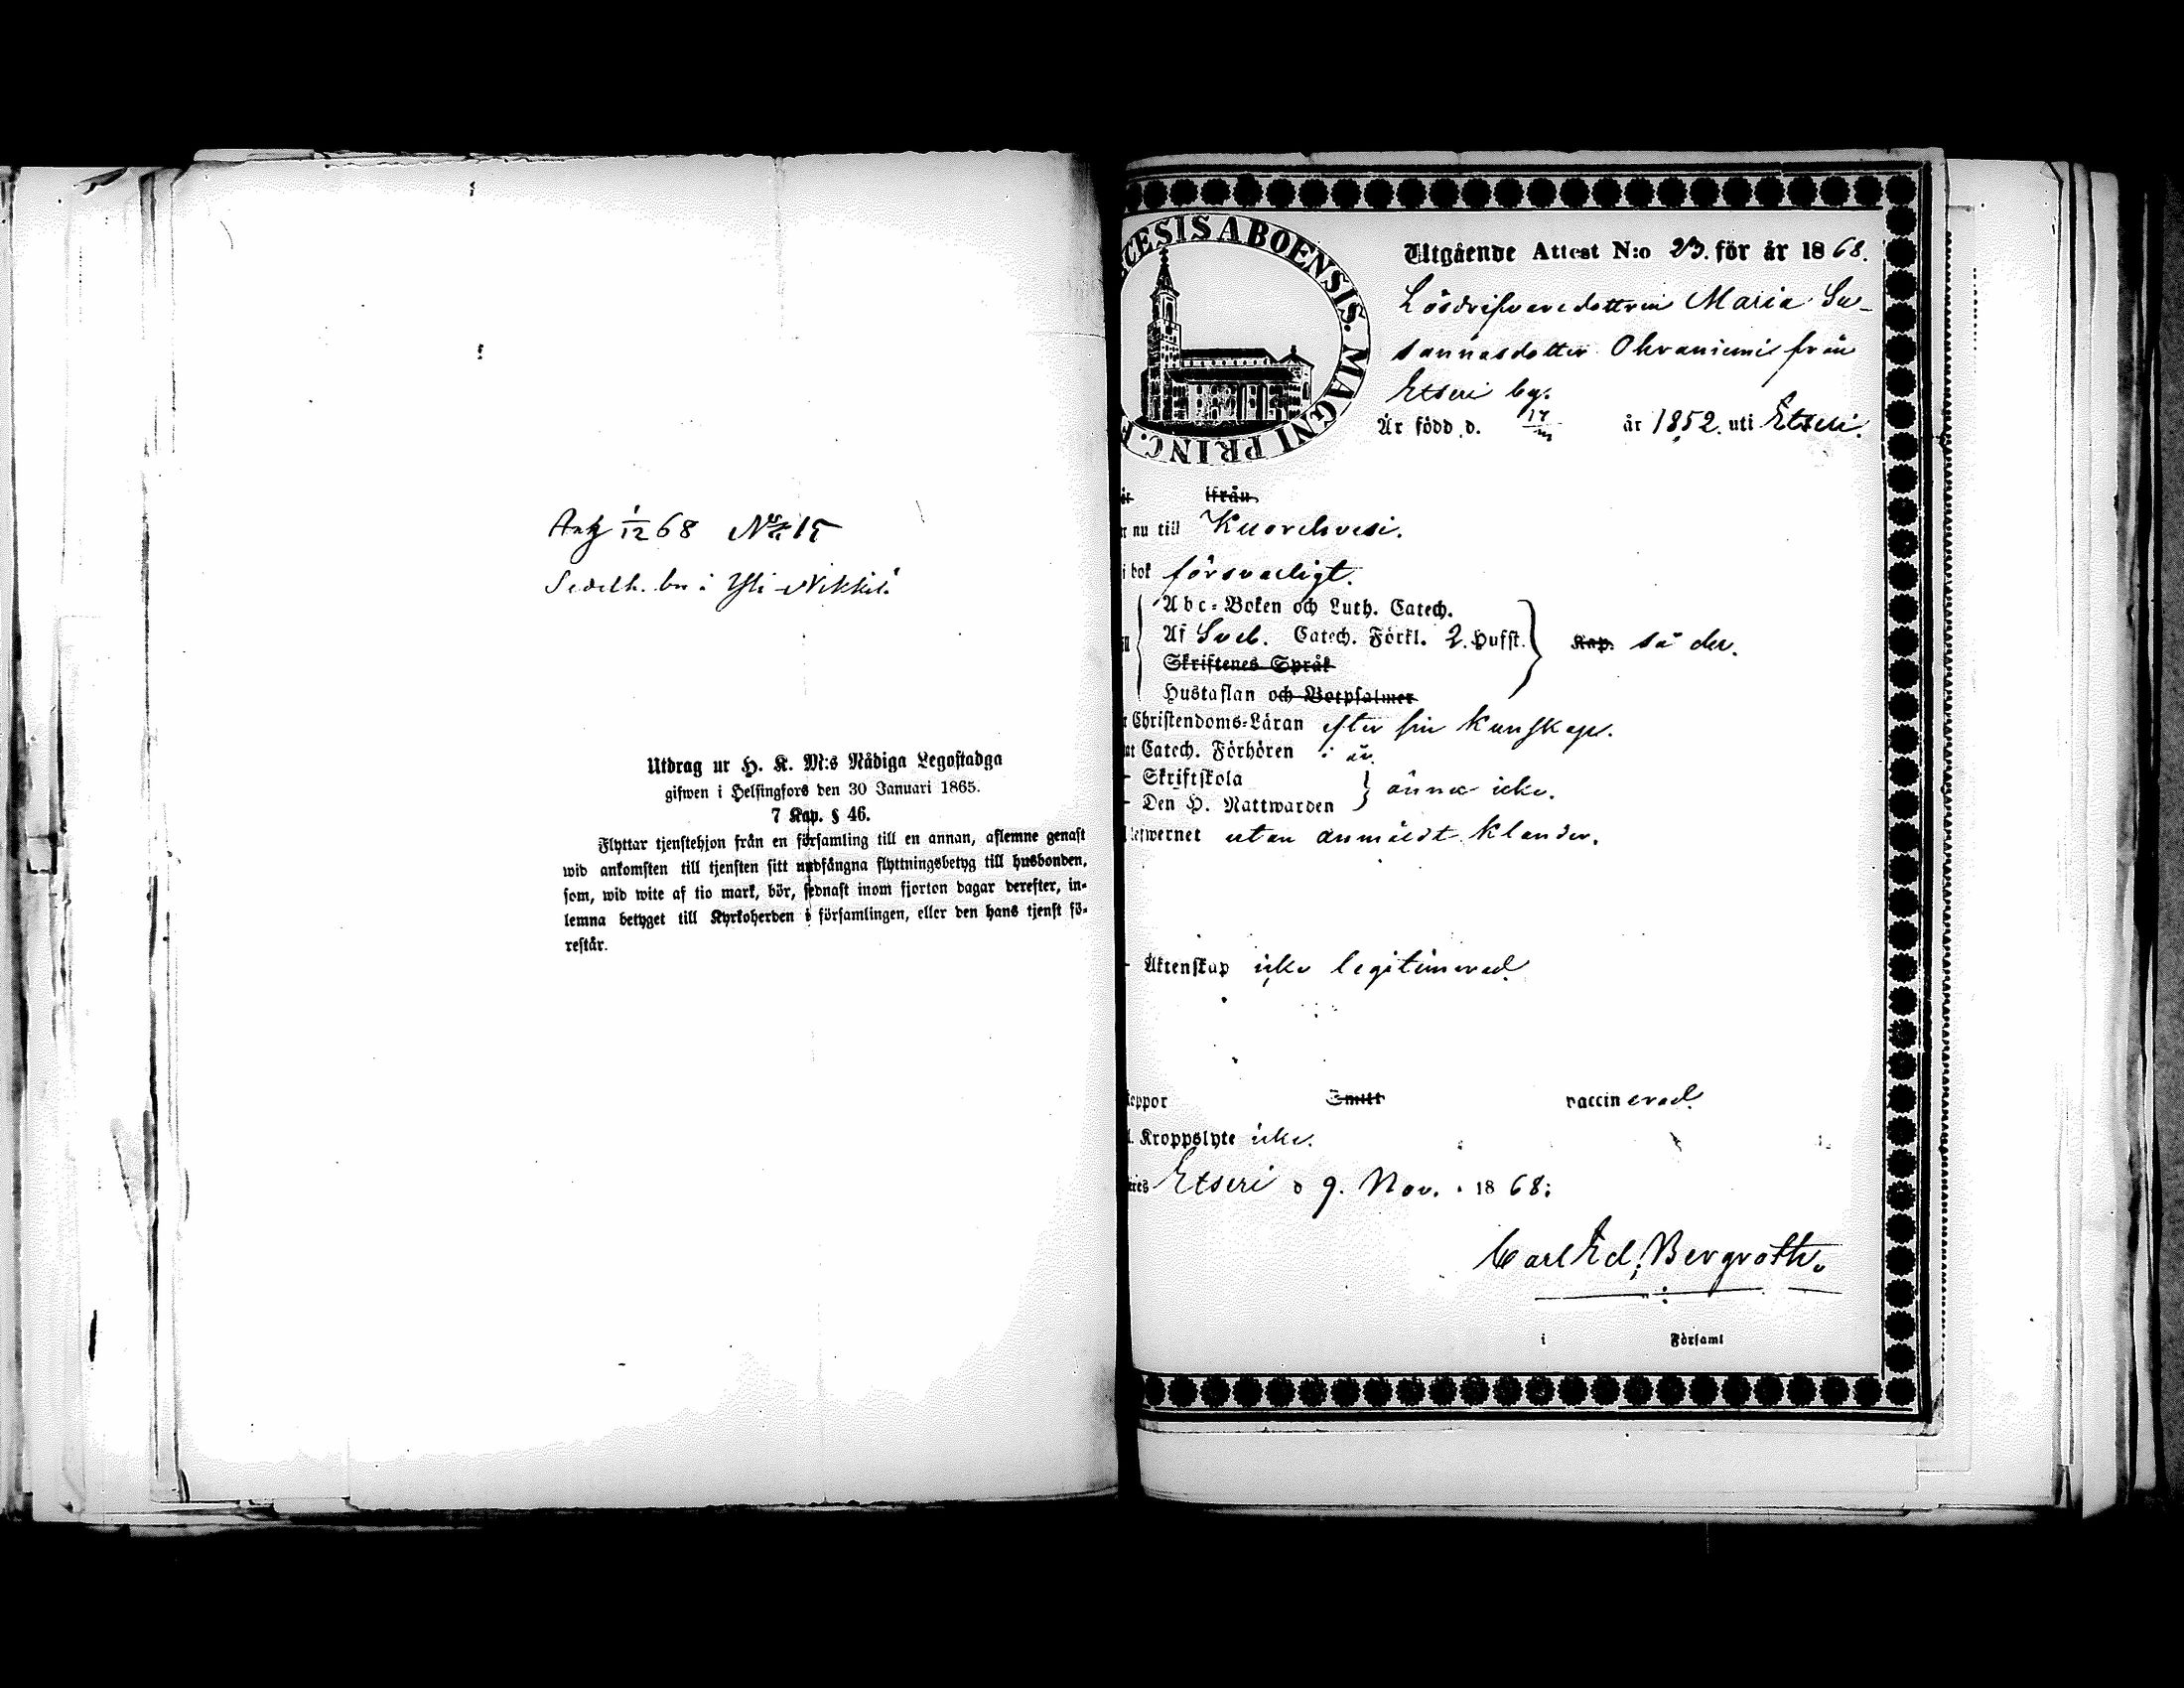 Antg 1/12 68 No 15
Sedelh. bu i Yli-Nikkilä
Utdrag ur H. K. M:s Nådiga Legostadga
gifwen i Helsingfors den 30 Januari 1865.
7 Kap. § 46.
Flyttar tjenstehjon från en församling till en annan, aflemne genast
wid ankomsten till tjensten sitt undfångna flyttningsbetyg till husbonden,
som, wid wite af tio mark, bör, sednast inom fjorton dagar derefter, in-
lemna betyget till Kyrkoherden i församlingen, eller den hans tjenst fö-
restår.
CESIS ABOENSIS. MAGNI PRINC. F
Utgående Attest N:o 23. för år 1868.
Lösdrifveredottren Maria Su-
sannasdotter Ohraniemi från
Etseri by.
Är född d. 17 år 1852. uti Etseri.
ifrån
nu till Kuorehvesi.
i bok försvarligt.
Abc-Boken och Luth. Catech.
Af Sveb. Catech. Förkl. 2. Hufst. Kap. så der.
Skriftenes Språk
Hustaflan och Botpsalmer
Christendoms-Läran efter sin kunskap.
Catech. Förhören är
Skriftskola
Den H. Nattwarden ännu icke.
lefwernet utan anmäldt klander.
Äktenskap icke legitimerad.
koppor vaccinerad.
Kroppslyte icke.
Etseri d 9. Nov. 1868.
Carl Ed. Bergroth.
i Församl